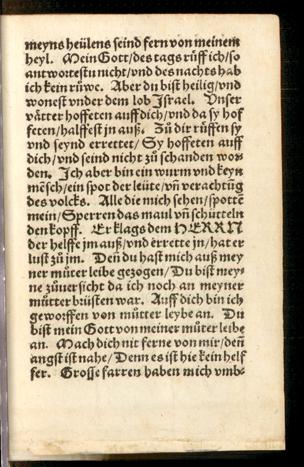 meyns heülens seind fern von meinem
heyl. Mein Gott/des tags rüff ich/so
antwortestu nicht/vnd des nachts hab
ich kein rüwe. Aber du bist heilig/vnd
wonest vnder dem lob Israel. Vnser
vätter hoffeten auff dich/vnd da sy hof
feten/halffest jn auß. Zů dir rüffen sy
vnd seynd errettet/Sy hoffeten auff
dich/vnd seind nicht zů schanden wor
den. Ich aber bin ein wurm vnd keyn
mēsch/ein spot der leüte/vñ verachtũg
des volcks. Alle die mich sehen/spottē
mein/Sperren das maul vñ schütteln
den kopff. Er klags dem HERRN
der helffe jm auß/vnd errette jn/hat er
lust zů jm. Deñ du hast mich auß mey
ner můter leibe gezogen/Du bist mey=
ne zůuersicht da ich noch an meyner
můtter brüsten war. Auff dich bin ich
geworffen von můtter leybe an. Du
bist mein Gott von meiner můter leibe
an. Mach dich nit ferne von mir/deñ
angst ist nahe/Denn es ist hie kein helf
fer. Grosse farren haben mich vmb=